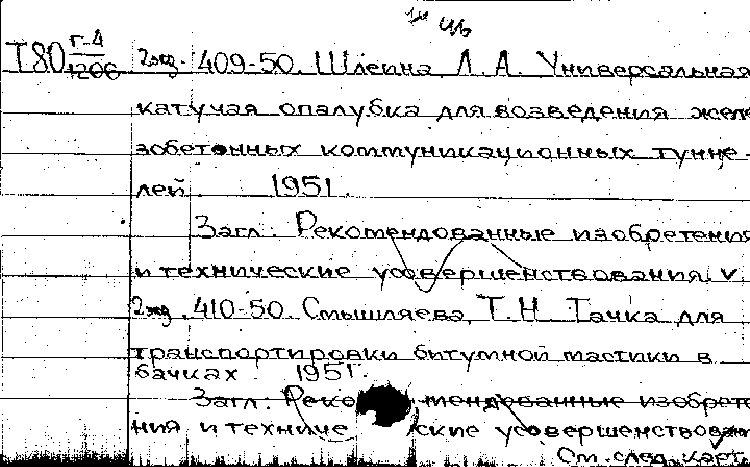 Т80 г-4
1206
2 экз. 409-50. Шлеина Л. А. Универсальная
катучая опалубка для возведения желе
зобетонных коммуникационных тунне-
лей. 1951.
Загл: Рекомендованные изобретения
и технические усовершенствования. v
2 экз. 410-50. Смышляева, Т. Н. Тачка для
транспортировки битумной мастики в
бачках 1951.
Загл: Реко мендованные изобрете
ния и техниче ские усовершенствован
См. след. карт